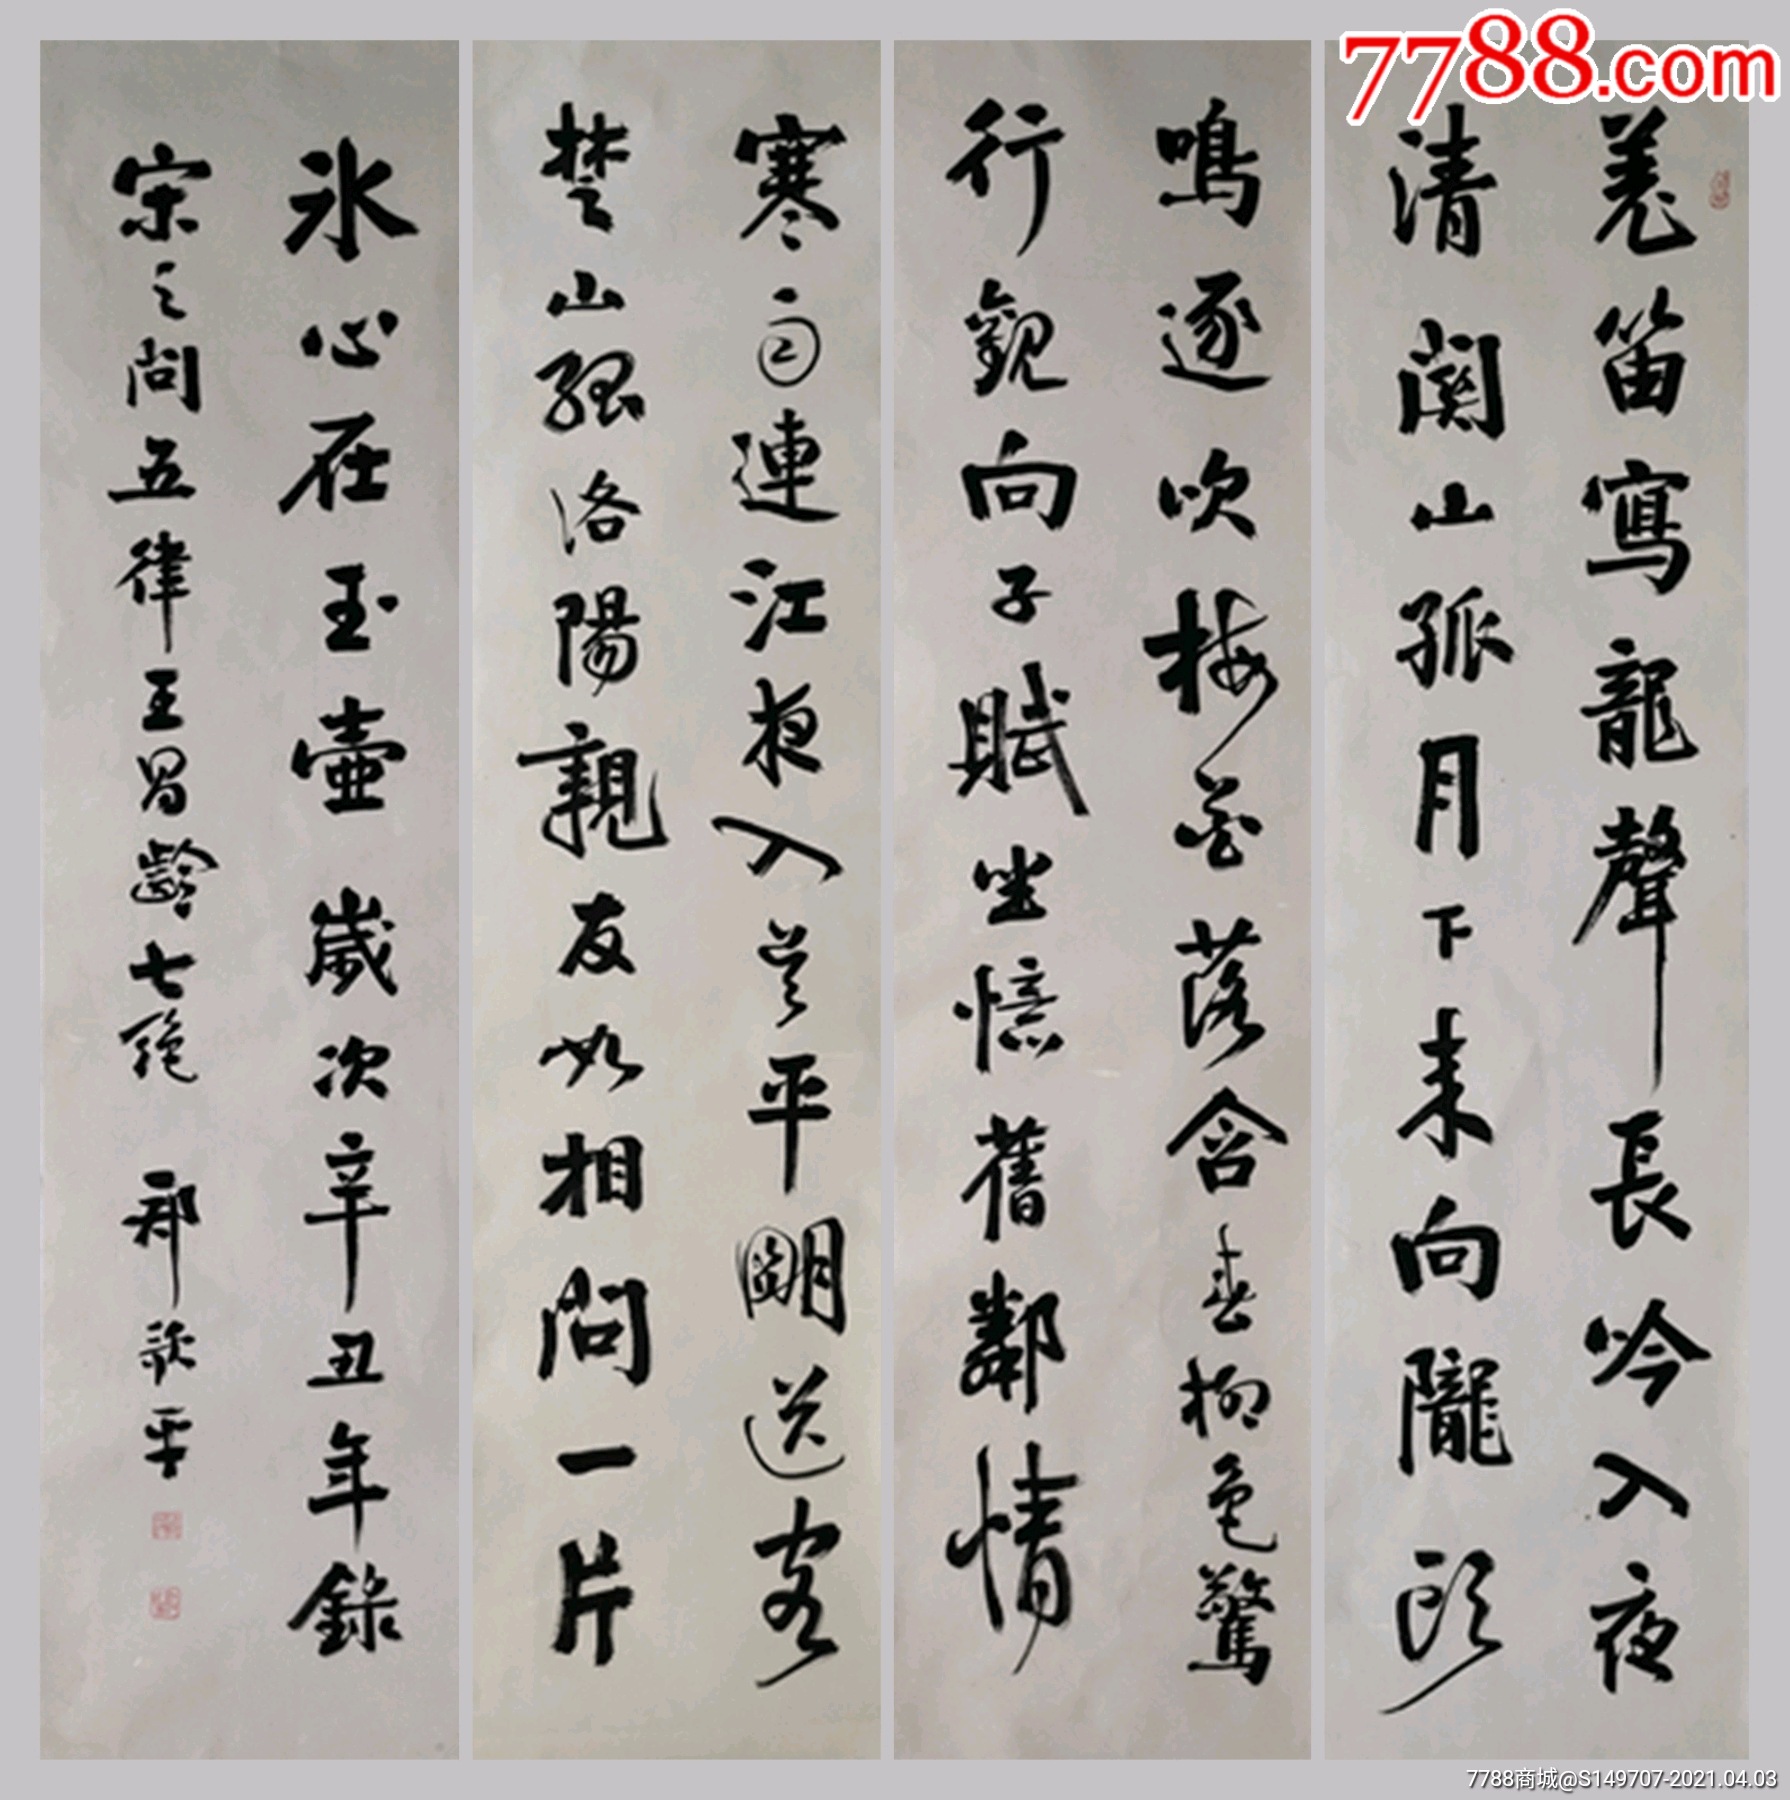 羌笛寫龍聲長吟入夜
清關山孤月下来向隴頭
鳴逐吹梅花落含春柳色驚
行觀向子賦坐憶舊鄰情
寒雨連江夜入吴平明送客
楚山孤洛陽親友如相問一片
氷心在玉壺歲次辛丑年錄
宋之問五律王昌齡七絶 平
7788.com
7788商城@S149707-2021.04.03